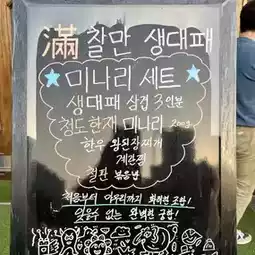 滿 찰만 생대패
미나리 세트
생대패 삼겹 3인분
청도 한재 미나리 200g
한우 황된장찌개
계란찜
철판 볶음밥
처음부터 마무리까지 화려한 조합!
있을수 없는 완벽한 궁합!